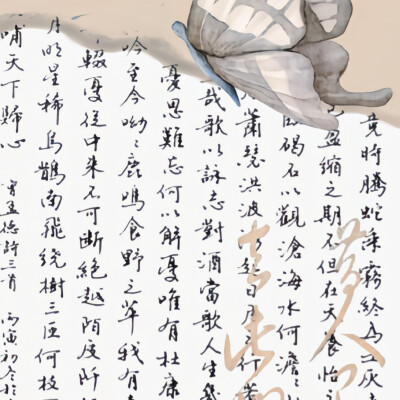 竟時騰蛇乘霧終為土灰
盈縮之期不但在天養怡之
碣石以觀滄海水何澹〻
蕭瑟洪波涌起日月之行若
哉歌以詠志對酒當歌人生幾
憂思難忘何以解憂唯有杜康
吟至今呦〻鹿鳴食野之苹我有
輟憂從中來不可斷絕越陌度阡
月明星稀烏鵲南飛繞樹三匝何枝
哺天下歸心 曹孟德詩三首 丙寅初冬於